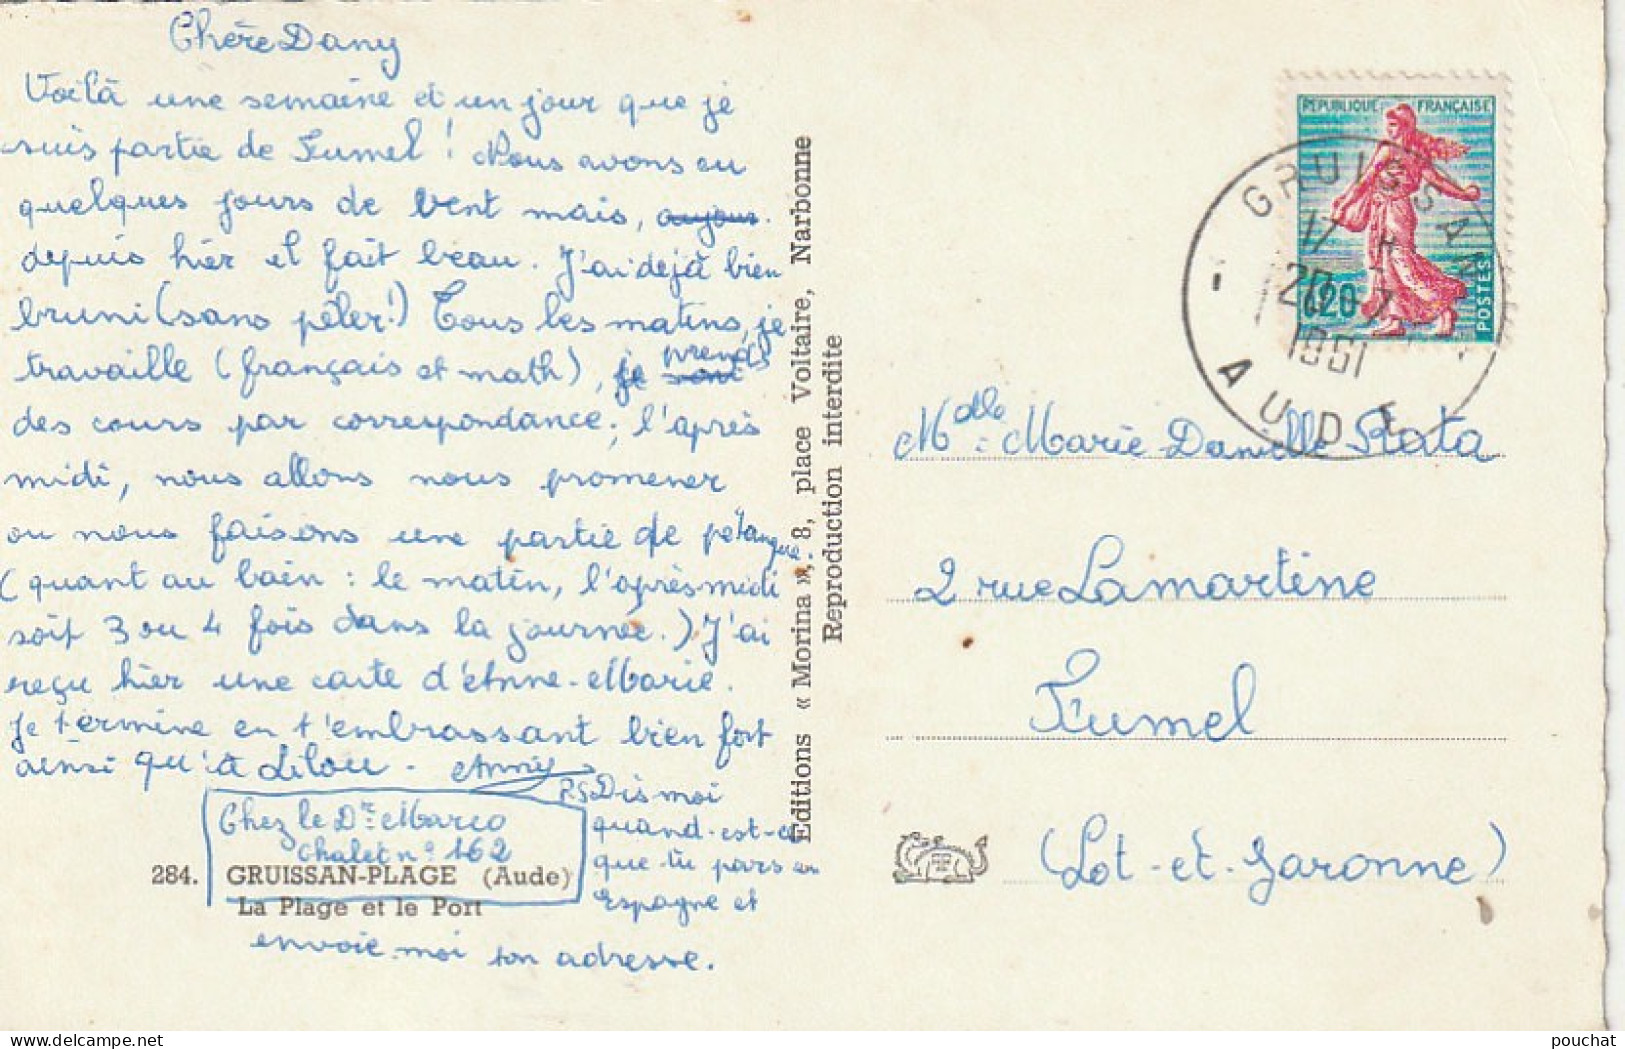 Chère Dany
Voilà une semaine et un jour que je
suis partie de Fumel ! Nous avons eu
quelques jours de vent mais,
depuis hier il fait beau. J'ai dejà bien
bruni (sans pêler!) Tous les matins, je
travaille (français et math), je prends
des cours par correspondance; l'après
midi, nous allons nous promener
ou nous faisons une partie de pétanque.
(quant au bain : le matin, l'après midi
soit 3 ou 4 fois dans la journée.) J'ai
reçu hier une carte d'Anne-Marie.
Je termine en t'embrassant bien fort
ainsi qu'à Lilou - Annie
PS Dis moi
quand-est-ce
que tu pars en
Espagne et
envoie-moi ton adresse.
Chez le Dr Marco
Chalet n° 162
284. GRUISSAN-PLAGE (Aude)
La Plage et le Port
Editions « Morina », 8, place Voltaire, Narbonne
Reproduction interdite
REPUBLIQUE FRANÇAISE
0,20
POSTES
GRUISSAN
17 H
20 - 7
1961
AUDE
Mdlle Marie Danielle Rata
2 rue Lamartine
Fumel
(Lot-et-Garonne)
pouchat